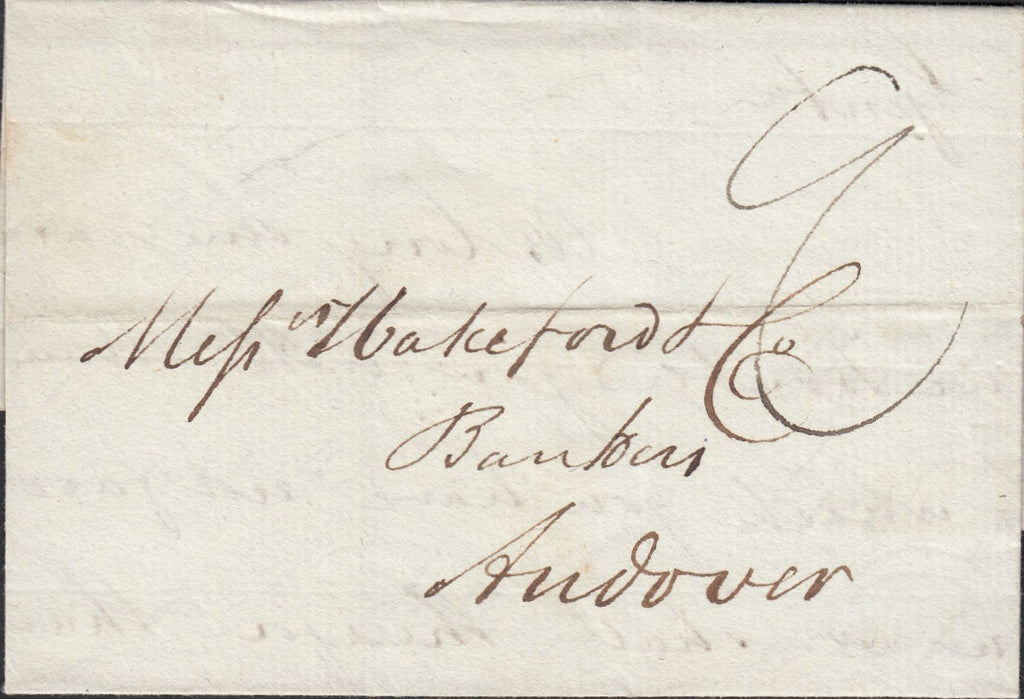 9
Messrs Wakeford & Co
Bankers
Andover